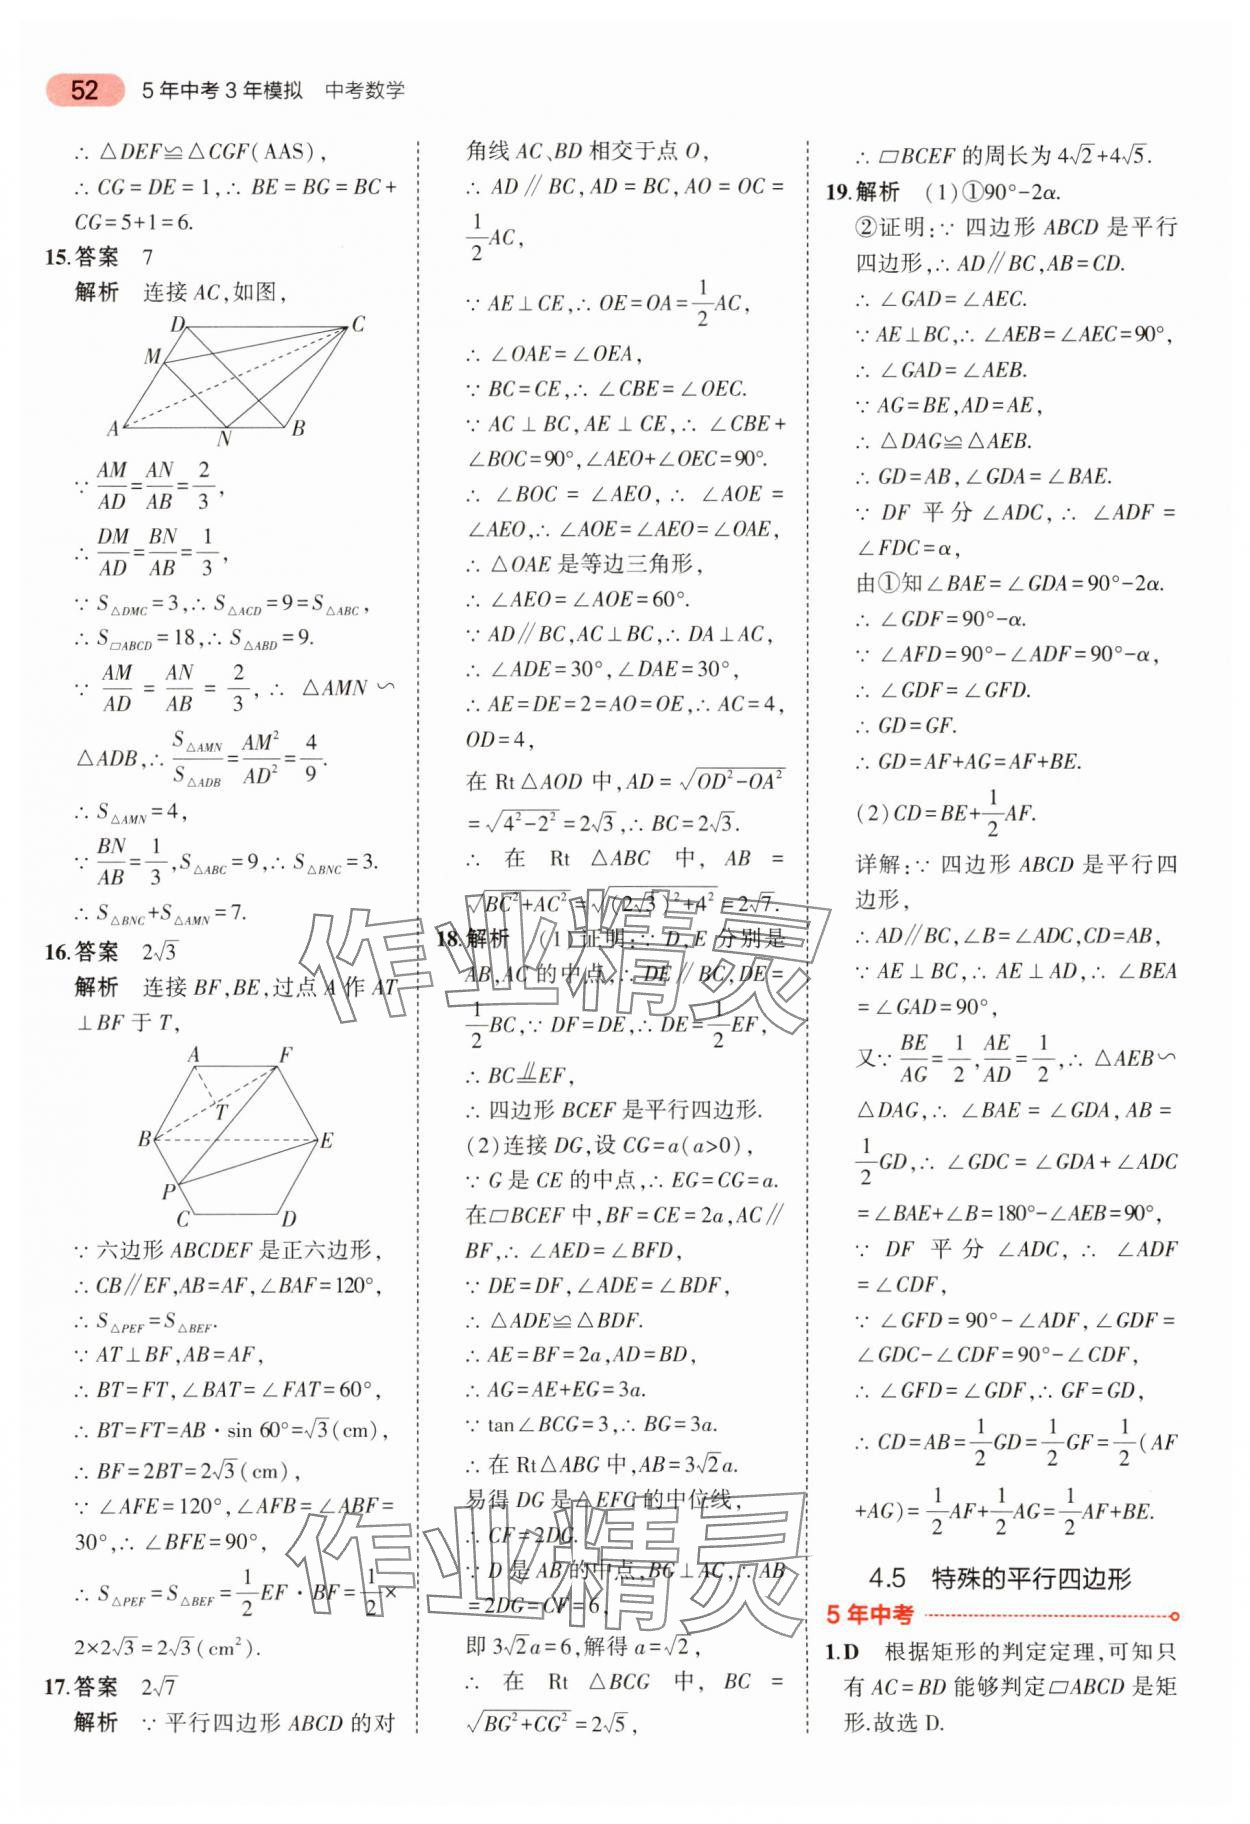 52 5年中考3年模拟 中考数学
∴ △DEF≌△CGF(AAS),
∴ CG=DE=1,∴ BE=BG=BC+
CG=5+1=6.
15.答案 7
解析 连接AC,如图,
D C
M
A N B
∵ AM/AD=AN/AB=2/3,
∴ DM/AD=BN/AB=1/3,
∵ S△DMC=3,∴ S△ACD=9=S△ABC,
∴ S▱ABCD=18,∴ S△ABD=9.
∵ AM/AD=AN/AB=2/3,∴ △AMN∽
△ADB,∴ S△AMN/S△ADB=AM²/AD²=4/9.
∴ S△AMN=4,
∵ BN/AB=1/3,S△ABC=9,∴ S△BNC=3.
∴ S△BNC+S△AMN=7.
16.答案 2√3
解析 连接BF,BE,过点A作AT
⊥BF于T,
A F
T
B E
P
C D
∵ 六边形ABCDEF是正六边形,
∴ CB∥EF,AB=AF,∠BAF=120°,
∴ S△PEF=S△BEF.
∵ AT⊥BF,AB=AF,
∴ BT=FT,∠BAT=∠FAT=60°,
∴ BT=FT=AB·sin 60°=√3(cm),
∴ BF=2BT=2√3(cm),
∵ ∠AFE=120°,∠AFB=∠ABF=
30°,∴ ∠BFE=90°,
∴ S△PEF=S△BEF=1/2EF·BF=1/2×
2×2√3=2√3(cm²).
17.答案 2√7
解析 ∵ 平行四边形ABCD的对
角线AC、BD相交于点O,
∴ AD∥BC,AD=BC,AO=OC=
1/2AC,
∵ AE⊥CE,∴ OE=OA=1/2AC,
∴ ∠OAE=∠OEA,
∵ BC=CE,∴ ∠CBE=∠OEC.
∵ AC⊥BC,AE⊥CE,∴ ∠CBE+
∠BOC=90°,∠AEO+∠OEC=90°.
∴ ∠BOC=∠AEO,∴ ∠AOE=
∠AEO,∴ ∠AOE=∠AEO=∠OAE,
∴ △OAE是等边三角形,
∴ ∠AEO=∠AOE=60°.
∵ AD∥BC,AC⊥BC,∴ DA⊥AC,
∴ ∠ADE=30°,∠DAE=30°,
∴ AE=DE=2=AO=OE,∴ AC=4,
OD=4,
在Rt△AOD中,AD=√(OD²-OA²)
=√(4²-2²)=2√3,∴ BC=2√3.
∴ 在 Rt △ABC 中,AB=
√(BC²+AC²)=√((2√3)²+4²)=2√7.
18.解析 (1)证明:∵ D,E分别是
AB,AC的中点,∴ DE∥BC,DE=
1/2BC,∵ DF=DE,∴ DE=1/2EF,
∴ BC⫫EF,
∴ 四边形BCEF是平行四边形.
(2)连接DG,设CG=a(a>0),
∵ G是CE的中点,∴ EG=CG=a.
在▱BCEF中,BF=CE=2a,AC∥
BF,∴ ∠AED=∠BFD,
∵ DE=DF,∠ADE=∠BDF,
∴ △ADE≌△BDF.
∴ AE=BF=2a,AD=BD,
∴ AG=AE+EG=3a.
∵ tan∠BCG=3,∴ BG=3a.
∴ 在Rt△ABG中,AB=3√2a.
易得DG是△EFC的中位线,
∴ CF=2DG.
∵ D是AB的中点,BG⊥AC,∴ AB
=2DG=CF=6,
即3√2a=6,解得a=√2,
∴ 在 Rt △BCG 中,BC=
√(BG²+CG²)=2√5,
∴ ▱BCEF的周长为4√2+4√5.
19.解析 (1)①90°-2α.
②证明:∵ 四边形ABCD是平行
四边形,∴ AD∥BC,AB=CD.
∴ ∠GAD=∠AEC.
∵ AE⊥BC,∴ ∠AEB=∠AEC=90°,
∴ ∠GAD=∠AEB.
∵ AG=BE,AD=AE,
∴ △DAG≌△AEB.
∴ GD=AB,∠GDA=∠BAE.
∵ DF平分∠ADC,∴ ∠ADF=
∠FDC=α,
由①知∠BAE=∠GDA=90°-2α.
∴ ∠GDF=90°-α.
∵ ∠AFD=90°-∠ADF=90°-α,
∴ ∠GDF=∠GFD.
∴ GD=GF.
∴ GD=AF+AG=AF+BE.
(2)CD=BE+1/2AF.
详解:∵ 四边形ABCD是平行四
边形,
∴ AD∥BC,∠B=∠ADC,CD=AB,
∵ AE⊥BC,∴ AE⊥AD,∴ ∠BEA
=∠GAD=90°,
又∵ BE/AG=1/2,AE/AD=1/2,∴ △AEB∽
△DAG,∴ ∠BAE=∠GDA,AB=
1/2GD,∴ ∠GDC=∠GDA+∠ADC
=∠BAE+∠B=180°-∠AEB=90°,
∵ DF平分∠ADC,∴ ∠ADF
=∠CDF,
∵ ∠GFD=90°-∠ADF,∠GDF=
∠GDC-∠CDF=90°-∠CDF,
∴ ∠GFD=∠GDF,∴ GF=GD,
∴ CD=AB=1/2GD=1/2GF=1/2(AF
+AG)=1/2AF+1/2AG=1/2AF+BE.
4.5 特殊的平行四边形
5年中考
1.D 根据矩形的判定定理,可知只
有AC=BD能够判定▱ABCD是矩
形.故选D.
作业精灵
作业精灵